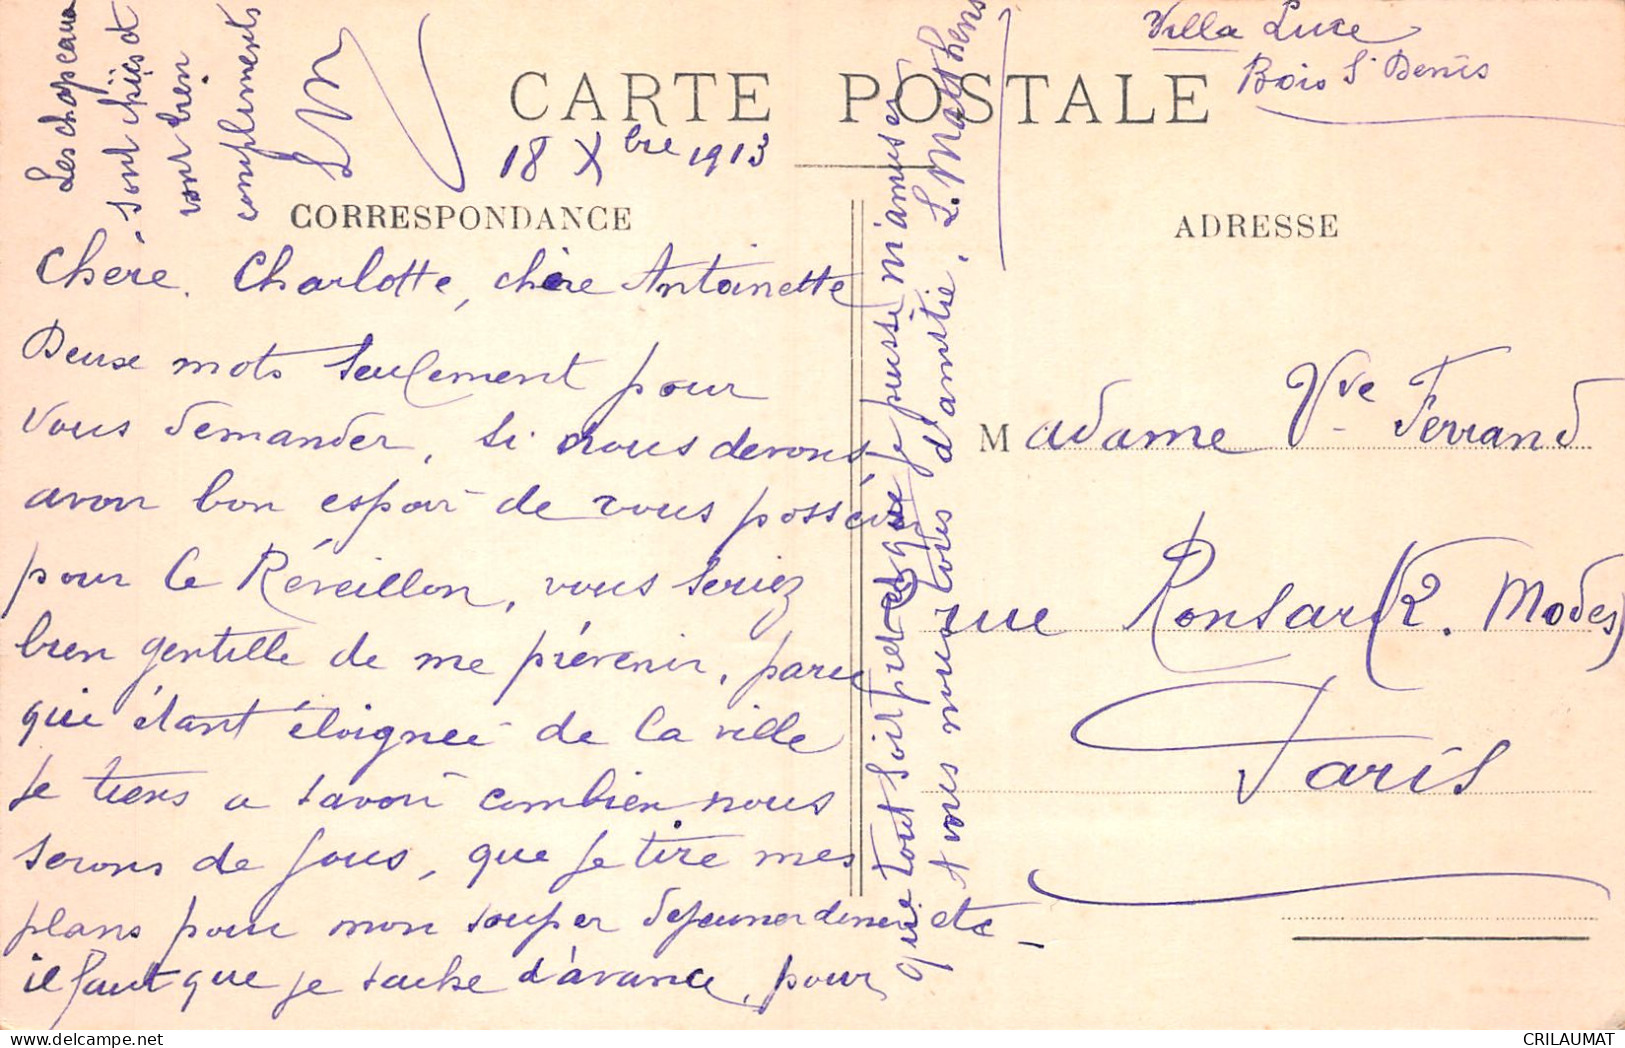 Villa Luce
Bois St Denis
CARTE POSTALE
18 Xbre 1913
CORRESPONDANCE
ADRESSE
Chère Charlotte, chère Antoinette
Deux mots seulement pour
vous demander, si nous devons
avoir bon espoir de vous posséder
pour le Réveillon, vous seriez
bien gentille de me prévenir, parce
qui étant éloignée de la ville
je tiens a savoir combien nous
serons de fous, que je tire mes
plans pour mon souper dejeuner diner etc
il faut que je sache d'avance, pour
que tout soit pret et que je puisse m'amuser
A vous nous tous d'amitié. L. Matthens
Les chapeaux
sont chiics et
vont bien
compliments
LM
Madame Vve Ferrand
rue Ronsard (2. Modes)
Paris
CRILAUMAT